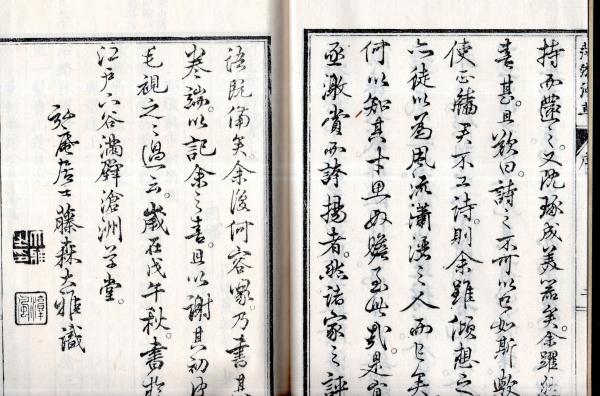 持而還之。又既琢成美器矣。余躍然
喜甚。且欲曰。詩之不可以已如斯歟。
使正蟠天不工詩。則余雖傾想之
亦徒以為風流瀟洒之人而已矣。
何以知其才思敏贍至此哉。是宜
亟激賞而誇揚者。然諸家之評
語既備矣。余復何容喙。乃書其
卷端。以記余之喜。且以謝其初
毛視之之過云。歲在戊午秋。書於
江戶八谷溝驛滄洲草堂。
弘庵居士藤森大雅識